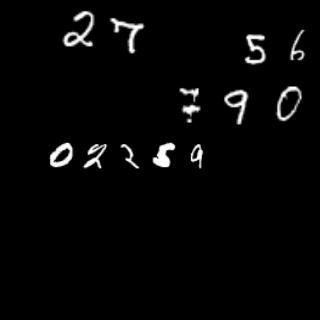 27
56
790
02259